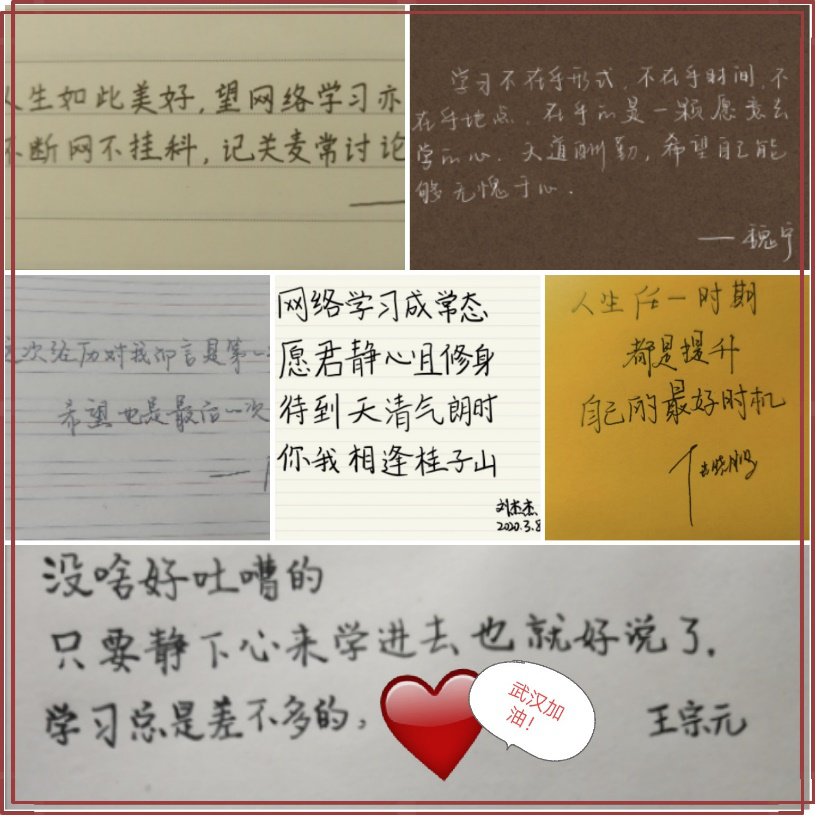 人生如此美好,望网络学习亦
不断网不挂科,记关麦常讨论
学习不在乎形式,不在乎时间,不
在乎地点,在乎的是一颗愿意去
学的心.天道酬勤,希望自己能
够无愧于心.
——魏宁
这次经历对我而言是第一
希望也是最后一次
网络学习成常态
愿君静心且修身
待到天清气朗时
你我相逢桂子山
刘杰杰
2020.3.8
人生任一时期
都是提升
自己的最好时机
没啥好吐嘈的
只要静下心来学进去也就好说了.
学习总是差不多的,
武汉加
油!
王宗元